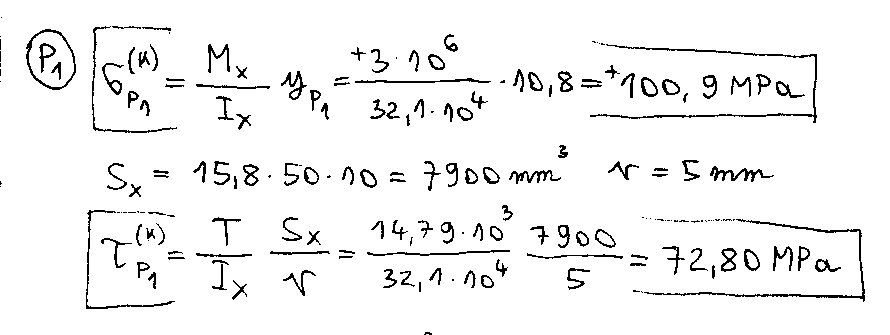 P₁ σ_{P₁}^{(K)} = \frac{M_x}{I_x} y_{P₁} = \frac{+3·10^6}{32,1·10^4} · 10,8 = +100,9 MPa
S_x = 15,8·50·10 = 7900 mm³ v = 5 mm
τ_{P₁}^{(K)} = \frac{T}{I_x} \frac{S_x}{v} = \frac{14,79·10^3}{32,1·10^4} \frac{7900}{5} = 72,80 MPa